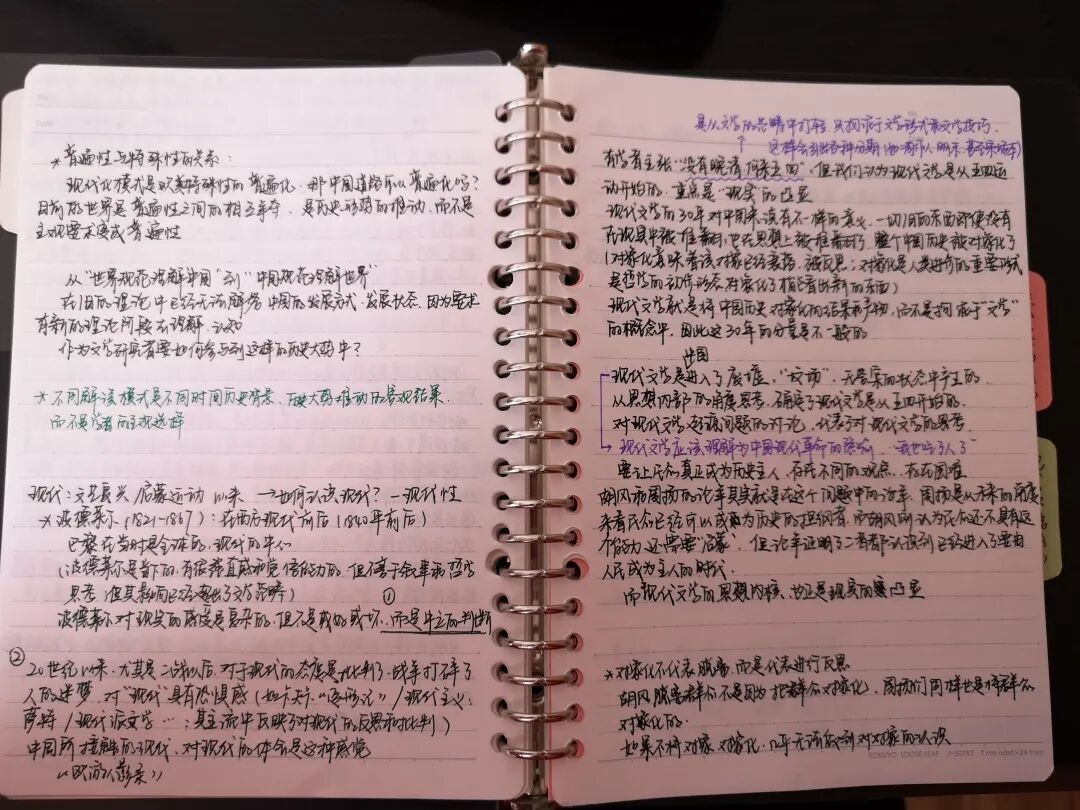 *普遍性与特殊性的关系：
现代化模式是欧美特殊性的普遍化，那中国道路可以普遍化吗？
目前的世界是普遍性之间的相互争夺，是历史形势的推动，而不是
主观要求变成普遍性
从“世界观范理解中国”到“中国观范理解世界”
在旧的理论中已经无法解答中国的发展方式、发展状态，因为要求
有新的理论阶段去理解、认知
作为文学研究者要如何参与到这样的历史大势中？
*不同解读模式是不同时间历史背景、历史大势推动的客观结果，
而不是学者的主观选择
现代：文艺复兴/启蒙运动以来 →如何认识现代？—现代性
*波德莱尔（1821-1867）：在西方现代前后（1840年前后）
巴黎在当时是全球的、现代的中心
（波德莱尔是当下的，有很强直感和觉悟能力的，但不善于叙事和哲学
思考，但其影响已经超出了文学范畴）
波德莱尔对现实的感受是复杂的，但不是或好或坏，而是中立的判断
①
②
20世纪以来，尤其是二战以后，对于现代的态度是批判了，战争打碎了
人的迷梦，对“现代”具有恐惧感（如卡夫卡《变形记》/现代主义，
萨特/现代派文学…：其主流中反映了对现代的反思和批判）
中国所接触的现代，对现代的体会是这种感觉
是从文学的范畴中打转，只拘泥于文学形式和文学技巧，
这样会引出各种分期
有学者主张“没有晚清，何来五四”，但我们认为现代文学是从五四运
动开始的，重点是“现实”的凸显
现代文学的30年对中国来说有不一样的意义，一切旧的东西即使没有
在现实中被推翻，也在思想上被推翻了，整个中国历史被对象化了
（对象化意味着该对象已经衰落、被反思；对象化是人类进行的重要形式，
是哲学的初衷形态，对象化了相应看出新的东西）
现代文学就是将中国历史对象化的结果和产物，而不是拘泥于“文学”
的概念中，因此这30年的分量是不一般的
中国
现代文学是进入了废墟、“故场”、无答案的状态中产生的，
从思想内部的角度思考，确定了现代文学是从五四开始的，
对现代文学起源问题的讨论，代表了对现代文学的思考
→现代文学应该理解为中国现代革命的
要让民众真正成为历史主人，存在不同的观点，存在困难
胡风和周扬的论争其实就是在这个问题中的论争，周扬是从未来的角度
来看民众已经可以成为历史的担纲者，而胡风则认为民众还不具有这
个能力，还需要“启蒙”，但论争证明了二者都认识到已经进入了要由
人民成为主人的时代，
而现代文学的思想内核，也正是现实的凸显
*对象化不代表脱离，而是代表进行反思
胡风脱离群众不是因为把群众对象化，周扬们同样也是将群众
对象化的，
如果不将对象对象化，几乎无法做到对对象的认识
KOKUYO LOOSE-LEAF 7 mm ruled×24 lines